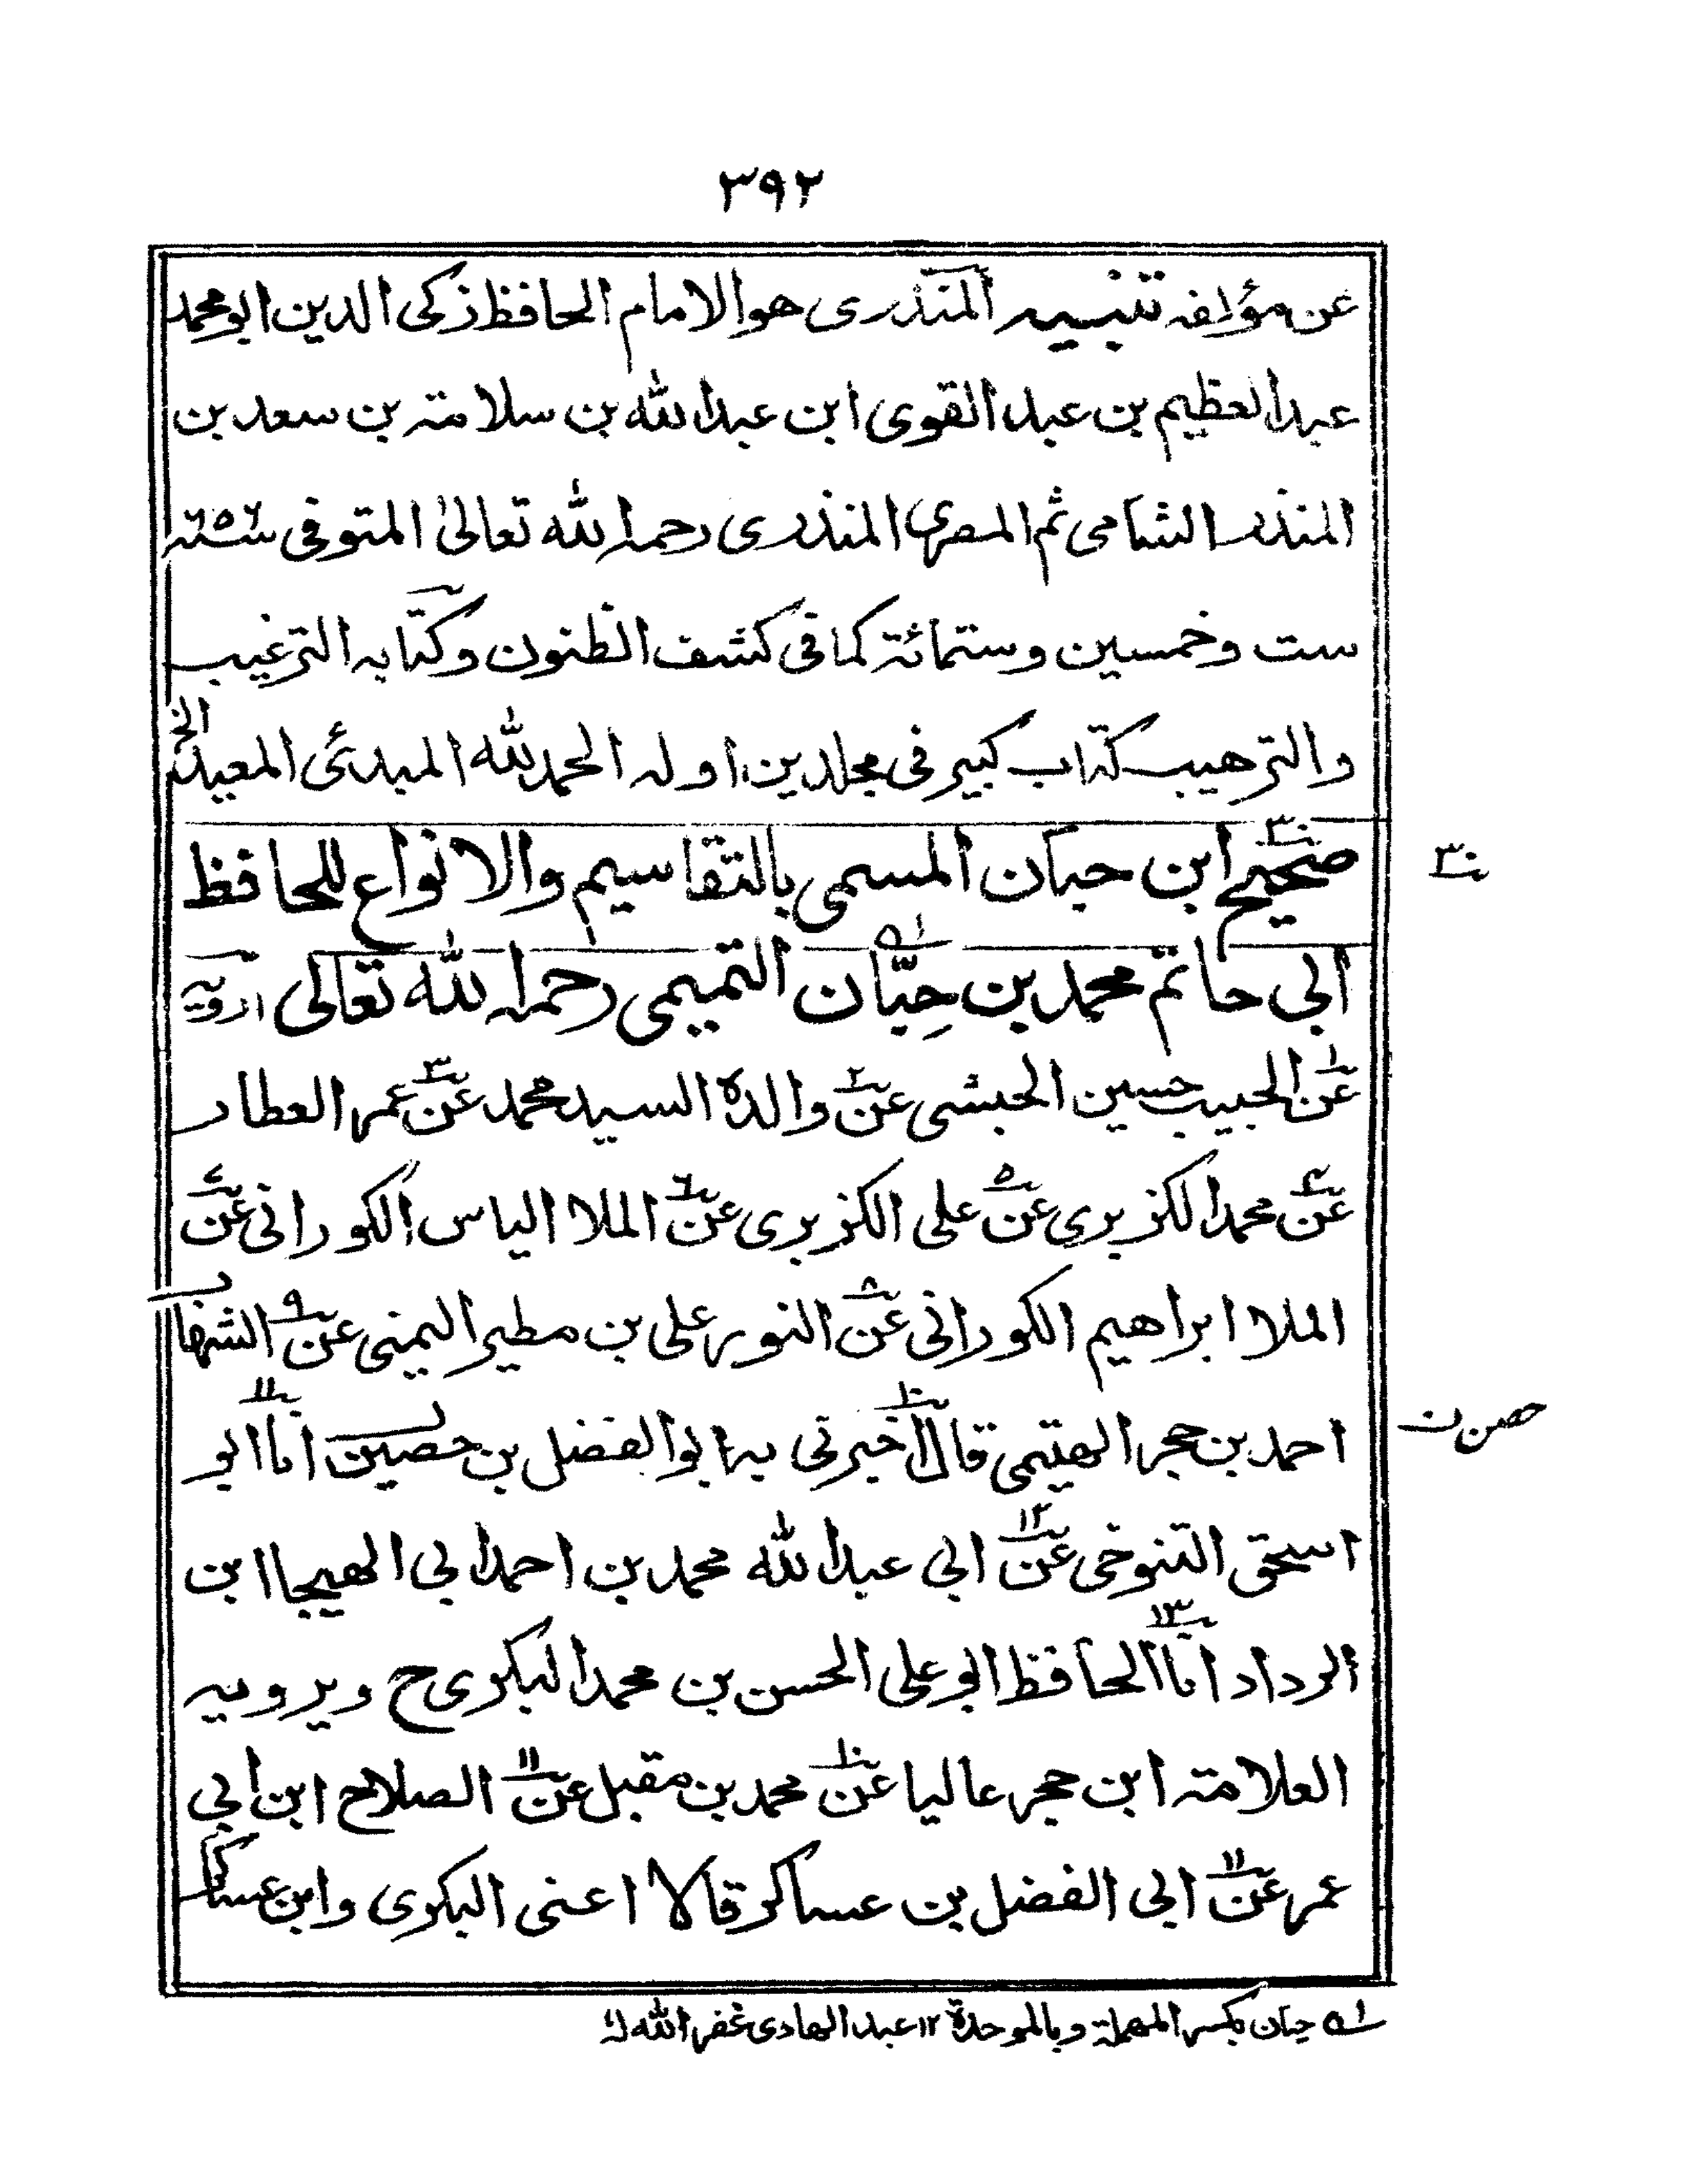 ٣٩٢
عن مؤلفه تنبيه المنذرى هو الامام الحافظ زكى الدين ابو محمد
عبد العظيم بن عبد القوى ابن عبد الله بن سلامته بن سعد بن
المنذر الشامى ثم المصرى المنذرى رحمه الله تعالى المتوفى سنة ٦٥٦
ست وخمسين وستمائة كما فى كشف الظنون وكتابه الترغيب
والترهيب كتاب كبير فى مجلدين اوله الحمد لله المبدئ المعيد الخ
صحيح ابن حبان المسمى بالتقاسيم والانواع للحافظ
ابي حاتم محمد بن حِبَّان التميمى رحمه الله تعالى ارويه
عن الحبيب حسين الحبشى عن والده السيد محمد عن عمر العطار
عن محمد الكزبرى عن على الكزبرى عن الملا الياس الكورانى عن
الملا ابراهيم الكورانى عن النور على بن مطير اليمنى عن الشهاب
احمد بن حجر الهيتمى قال اخبرنى به ابو الفضل بن حصين انا ابو
اسحق التنوخى عن ابي عبد الله محمد بن احمد ابي الهيجا ابن
الرداد انا الحافظ ابو على الحسن بن محمد البكرى ح ويرويه
العلامته ابن حجر عاليا عن محمد بن مقبل عن الصلاح ابن ابي
عمر عن ابي الفضل بن عساكر قالا اعنى البكرى وابن عساكر
١ه حبان بكسر المهملة وبالموحدة ١٢ عبد الهادى غفر الله له